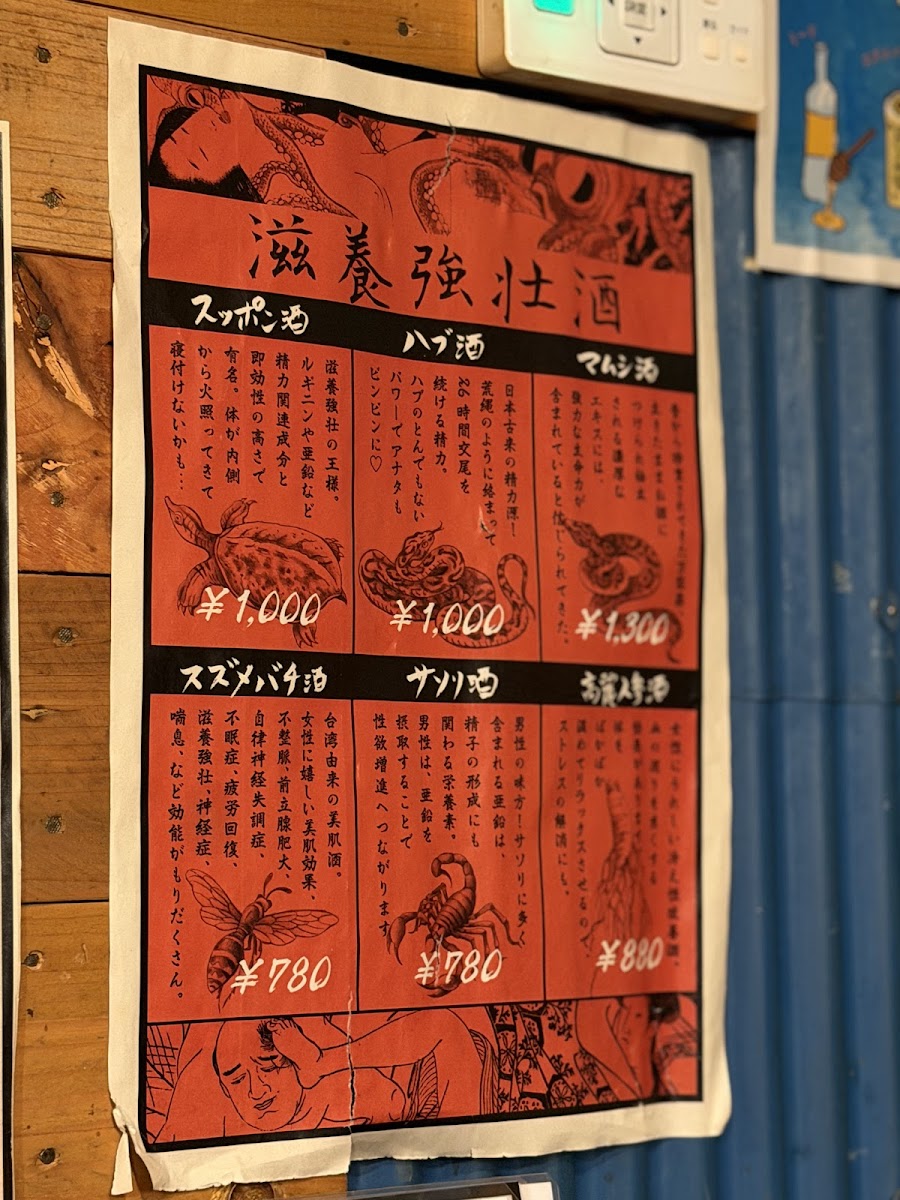 滋養強壮酒
スッポン酒
滋養強壮の王様。
ルギニンや亜鉛など
精力関連成分と
即効性の高さで
有名。体が内側
から火照ってきて
寝付けないかも…
¥1,000
ハブ酒
日本古来の精力源!
荒縄のように絡まって
26時間交尾を
続ける精力。
ハブのとんでもない
パワーでアナタも
ビンビンに♡
¥1,000
マムシ酒
生きたまま
される濃厚な
エキスには、
強力な生命力が
含まれていると信じられてきた。
¥1,300
スズメバチ酒
台湾由来の美肌酒。
女性に嬉しい美肌効果、
不整脈、前立腺肥大、
自律神経失調症、
不眠症、疲労回復、
滋養強壮、神経症、
喘息、など効能がもりだくさん。
¥780
サソリ酒
男性の味方!サソリに多く
含まれる亜鉛は、
精子の形成にも
関わる栄養素。
男性は、亜鉛を
摂取することで
性欲増進へつながります
¥780
高麗人参酒
女性にうれしい冷え性改善酒。
血の巡りを良くする
ぽかぽか
温めてリラックスさせるので、
ストレスの解消にも。
¥880